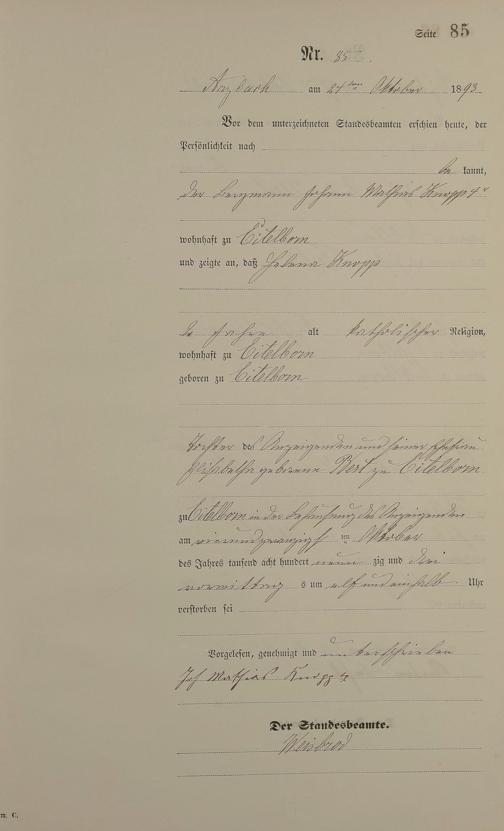 Seite 85
Nr. 85.
Arzbach am 24ten Oktober 1893
Vor dem unterzeichneten Standesbeamten erschien heute, der
Persönlichkeit nach
be kannt,
der Bergmann Johann Mathias Knopp
wohnhaft zu Eitelborn
und zeigte an, daß Helena Knopp
Jahre alt katholischer Religion,
wohnhaft zu Eitelborn
geboren zu Eitelborn
Tochter des Anzeigenden und seiner Ehefrau
Elisabetha geborene Bert zu Eitelborn
zu Eitelborn in der Behausung des Anzeigenden
am vierundzwanzigsten Oktober
des Jahres tausend acht hundert neun zig und drei
vormittags um elf und einhalb Uhr
verstorben sei
Vorgelesen, genehmigt und unterschrieben
Joh Mathias Knopp
Der Standesbeamte.
Weisbrod
m. C.